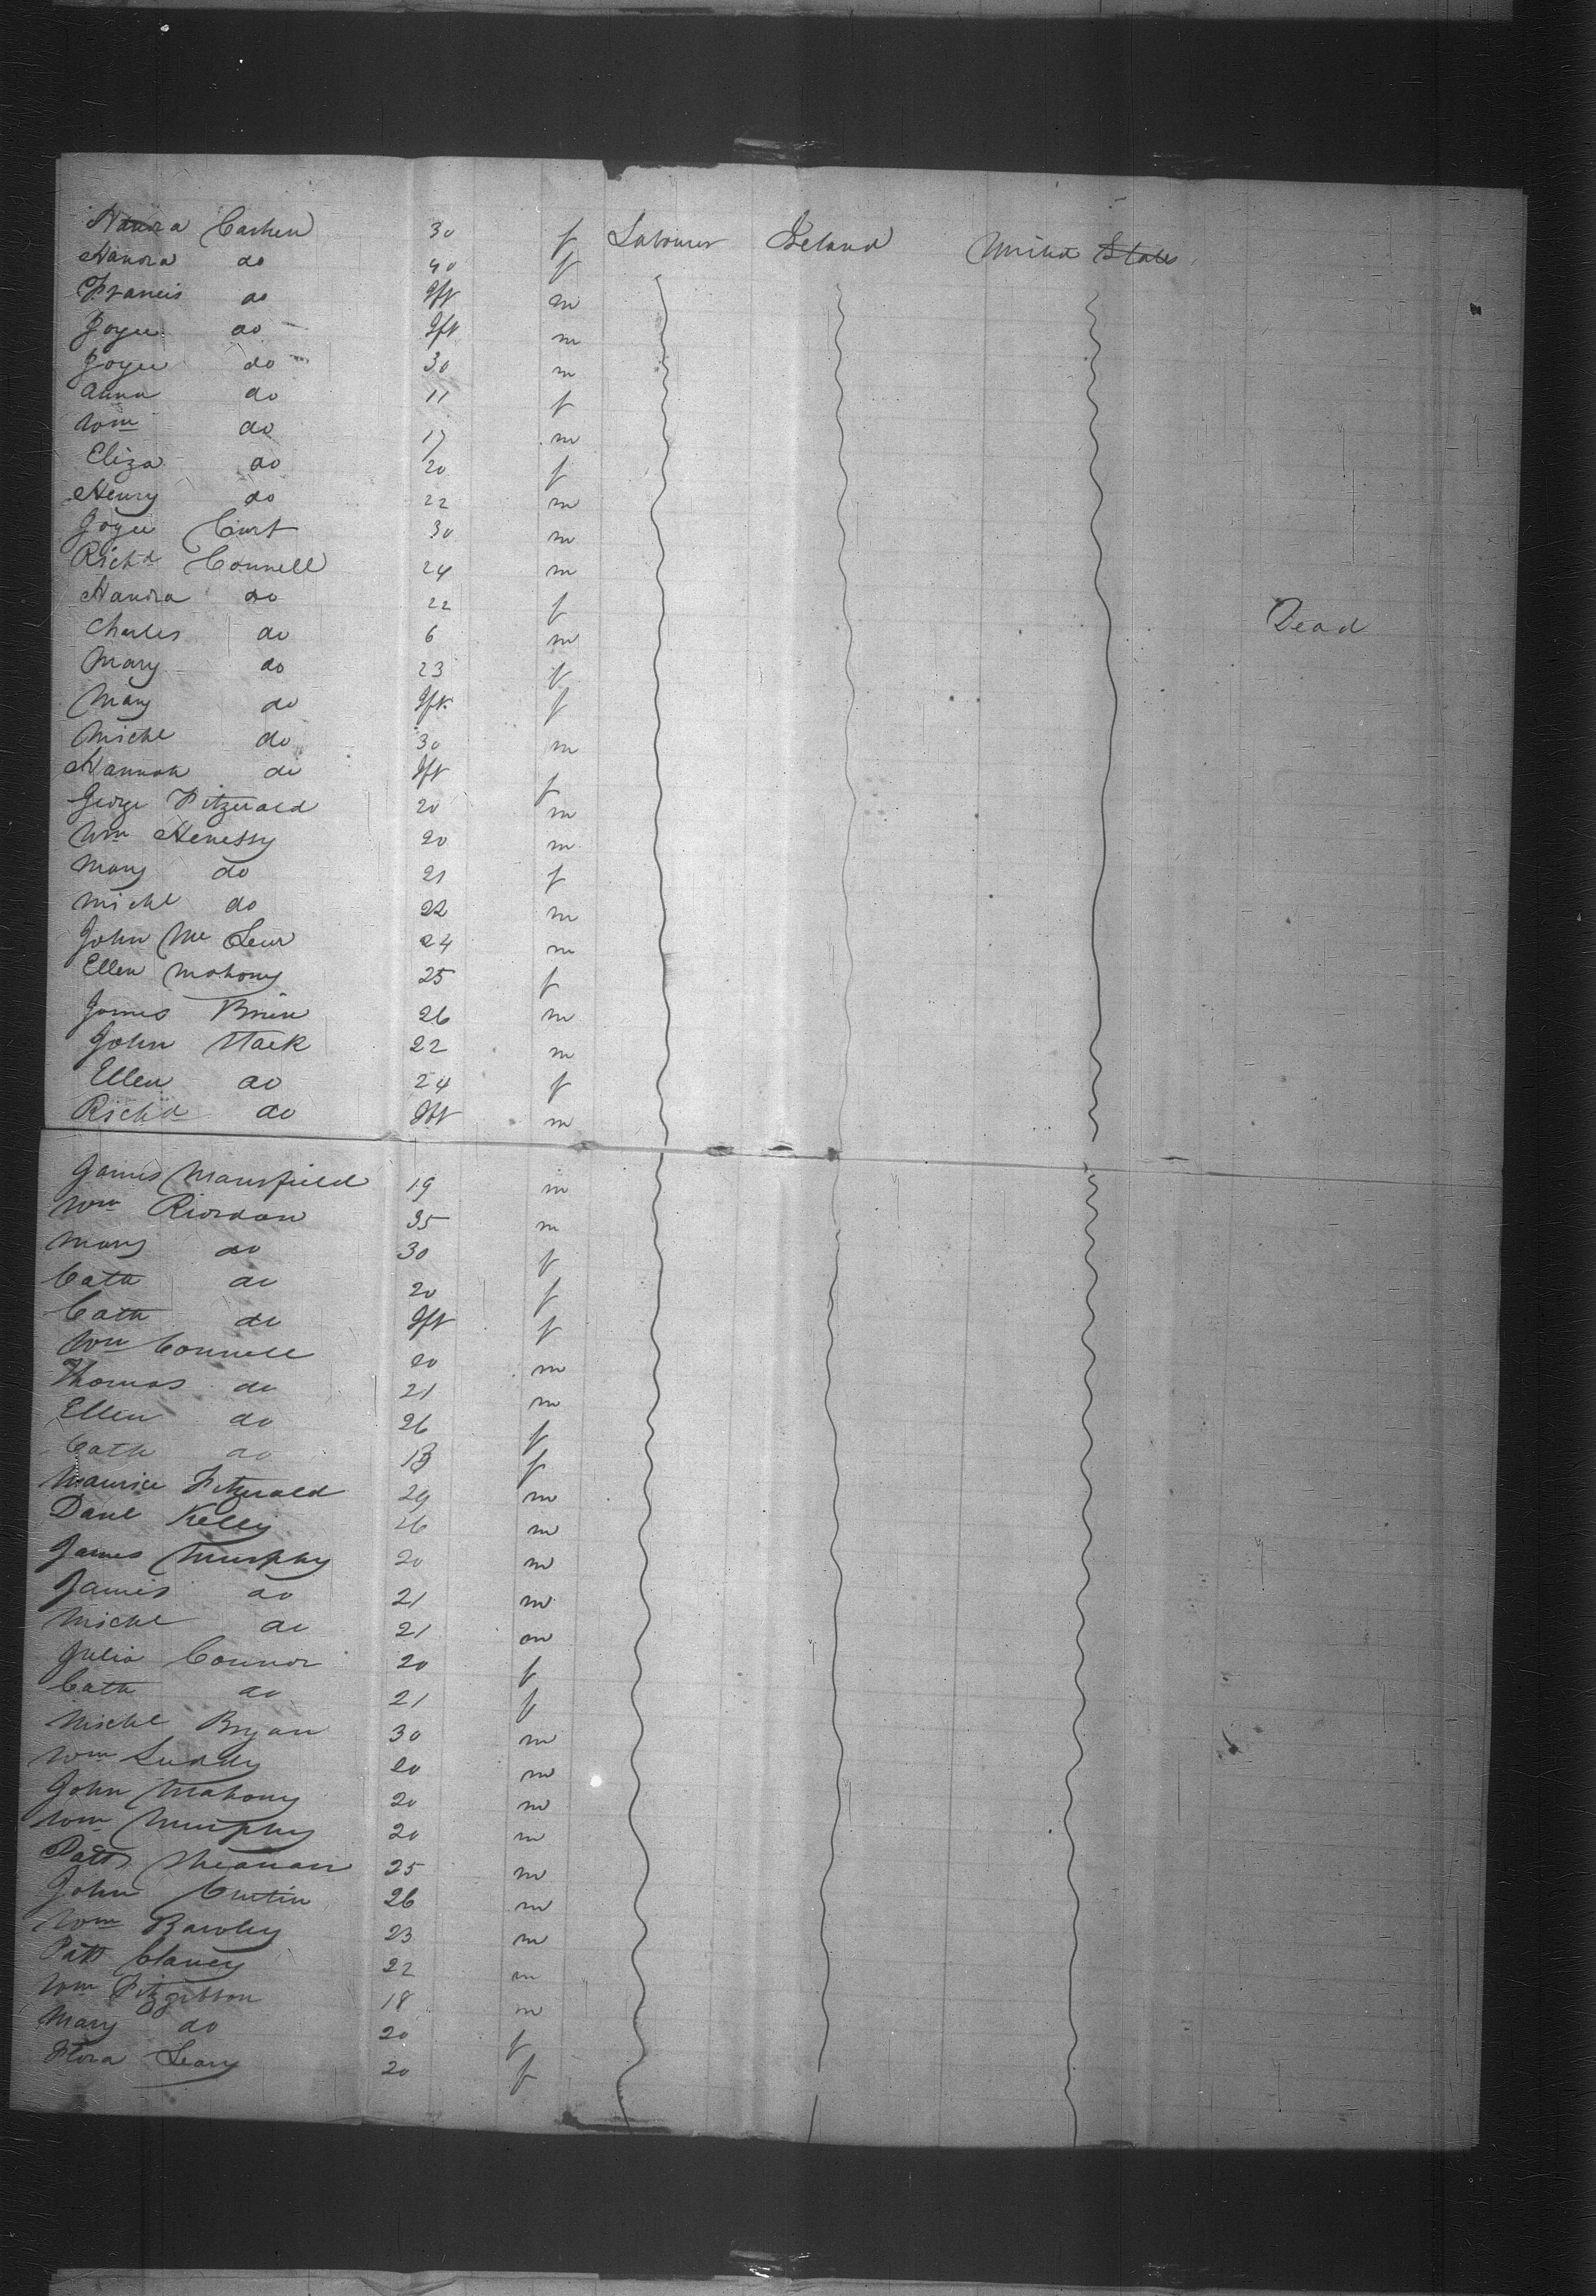 Hanora Cashen 30 f Labourer Ireland United States
Hanora do 40 f
Francis do Jft m
Joyce do Jft m
Joyce do 30 m
Anna do 11 f
Wm do 17 m
Eliza do 20 f
Henry do 22 m
Joyce Curt 30 m
Richd Connell 24 m
Hanora do 22 f
Charles do 6 m Dead
Mary do 23 f
Mary do Jft f
Michl do 30 m
Hannah do Jft f
George Fitzerald 20 m
Wm Henessy 20 m
Mary do 21 f
Michl do 22 m
John Mc 24 m
Ellen Mahony 25 f
James Brien 26 m
John Stack 22 m
Ellen do 24 f
Richd do Jft m
James Mansfield 19 m
Wm Riordan 35 m
Mary do 30 f
Cath do 20 f
Cath do Jft f
Wm Connell 20 m
Thomas do 21 m
Ellen do 26 f
Cath do 13 f
Maurice Fitzerald 29 m
Danl Kelly 26 m
James Murphy 20 m
James do 21 m
Michl do 21 m
Julia Connor 20 f
Cath do 21 f
Michl Bryan 30 m
Wm Luddy 20 m
John Mahony 20 m
Wm Murphy 20 m
Patt Sheanan 25 m
John Curtin 26 m
Wm Bawley 23 m
Patt Clancy 22 m
Wm Fitzgibbon 18 m
Mary do 20 f
Flora Leary 20 f